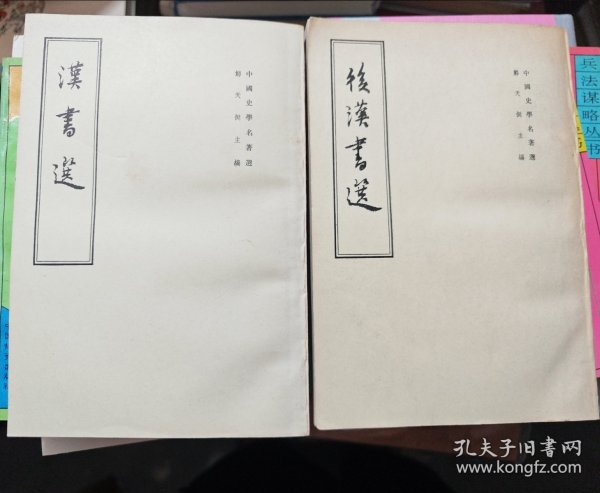 漢書選
中國史學名著選
鄭天挺主編
後漢書選
中國史學名著選
鄭天挺主編
兵法谋略丛书
孔夫子旧书网
www.kongfz.com